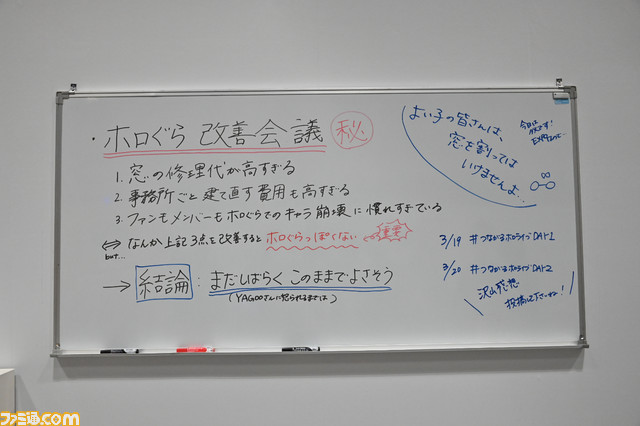 ・ホロぐら 改善会議 ㊙
1. 窓の修理代が高すぎる
2. 事務所ごと建て直す費用も高すぎる
3. ファンもメンバーもホロぐらでのキャラ崩壊に慣れすぎている
⇔ なんか上記3点を改善するとホロぐらっぽくない 重要
but...
→ 結論: まだしばらくこのままでよさそう
(YAGOOさんに怒られるまでは)
よい子の皆さんは、
窓を割っては
いけませんよ..
今日は
3/19 #つながるホロライブDAY1
3/20 #つながるホロライブDAY2
沢山感想
投稿して下さいね!
ファミ通.com